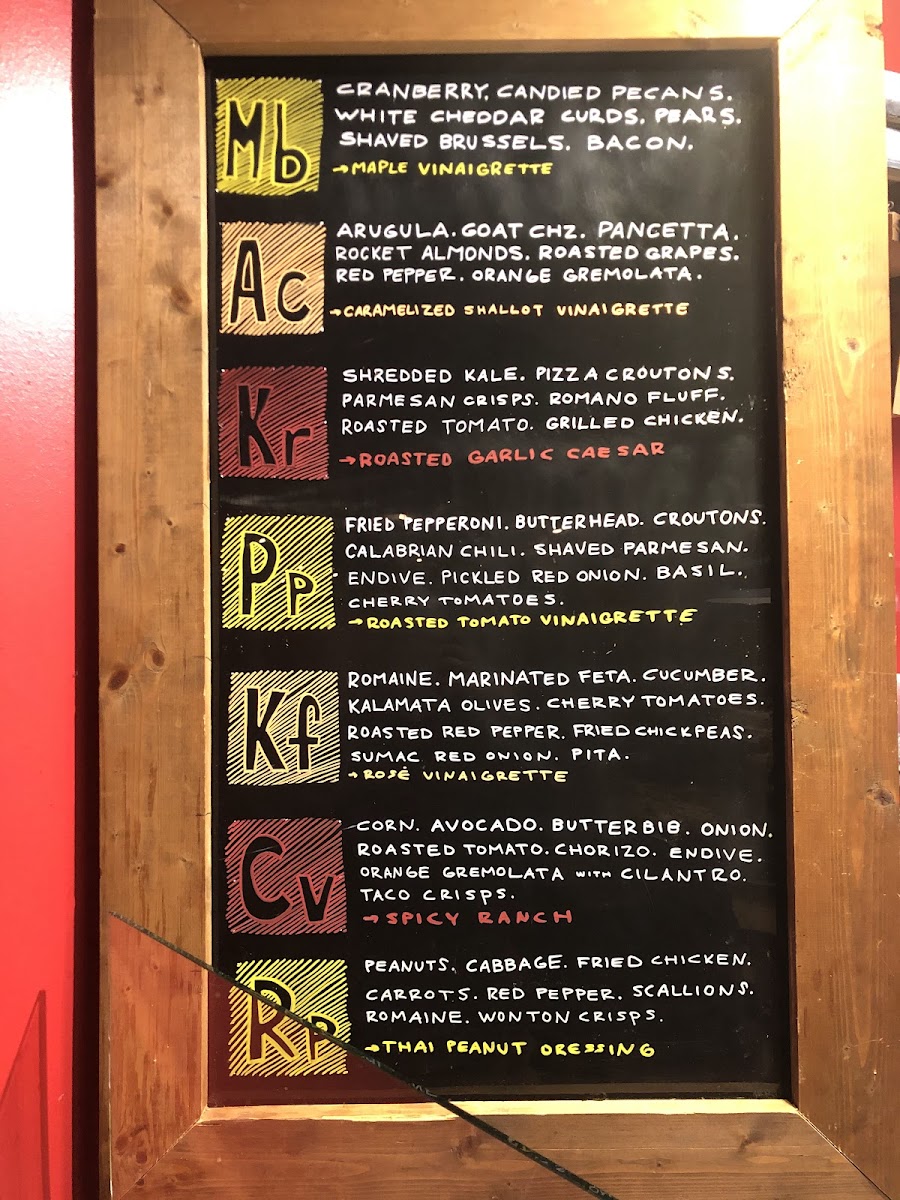 Mb
CRANBERRY. CANDIED PECANS.
WHITE CHEDDAR CURDS. PEARS.
SHAVED BRUSSELS. BACON.
→MAPLE VINAIGRETTE
Ac
ARUGULA. GOAT CHZ. PANCETTA.
ROCKET ALMONDS. ROASTED GRAPES.
RED PEPPER. ORANGE GREMOLATA.
→CARAMELIZED SHALLOT VINAIGRETTE
Kr
SHREDDED KALE. PIZZA CROUTONS.
PARMESAN CRISPS. ROMANO FLUFF.
ROASTED TOMATO. GRILLED CHICKEN.
→ROASTED GARLIC CAESAR
Pp
FRIED PEPPERONI. BUTTERHEAD. CROUTONS.
CALABRIAN CHILI. SHAVED PARMESAN.
ENDIVE. PICKLED RED ONION. BASIL.
CHERRY TOMATOES.
→ROASTED TOMATO VINAIGRETTE
Kf
ROMAINE. MARINATED FETA. CUCUMBER.
KALAMATA OLIVES. CHERRY TOMATOES.
ROASTED RED PEPPER. FRIED CHICKPEAS.
SUMAC RED ONION. PITA.
→ROSÉ VINAIGRETTE
Cv
CORN. AVOCADO. BUTTER BIB. ONION.
ROASTED TOMATO. CHORIZO. ENDIVE.
ORANGE GREMOLATA WITH CILANTRO.
TACO CRISPS.
→SPICY RANCH
Rp
PEANUTS. CABBAGE. FRIED CHICKEN.
CARROTS. RED PEPPER. SCALLIONS.
ROMAINE. WONTON CRISPS.
→THAI PEANUT DRESSING